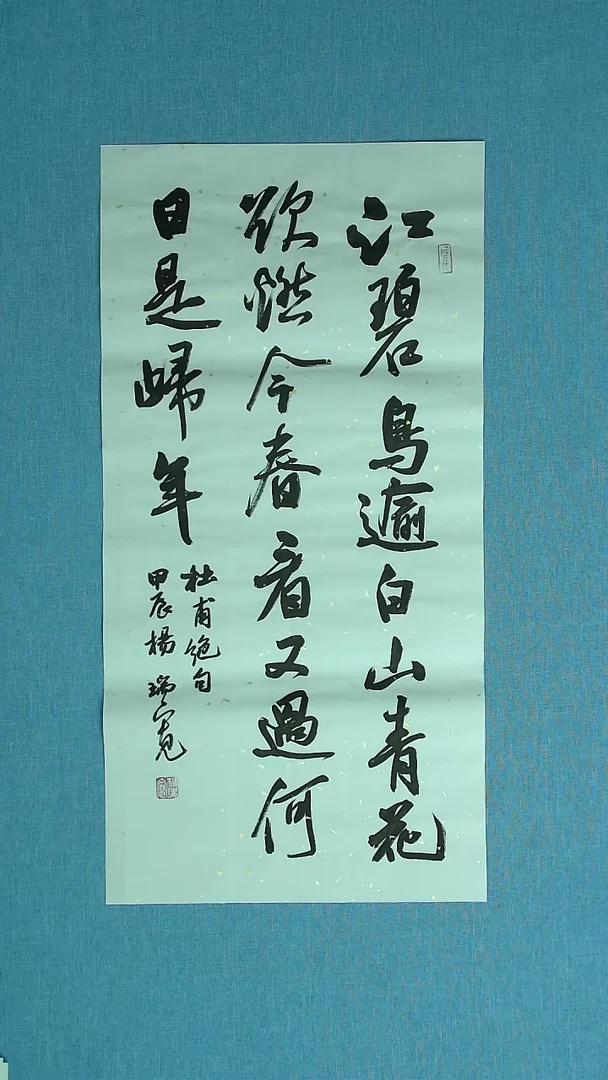 江碧鳥逾白山青花
欲燃今春看又過何
日是歸年
杜甫絶句
甲辰楊瑞寬